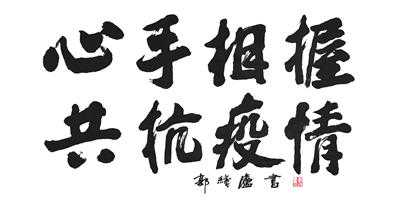 心手相握
共抗疫情
郭綫廬書